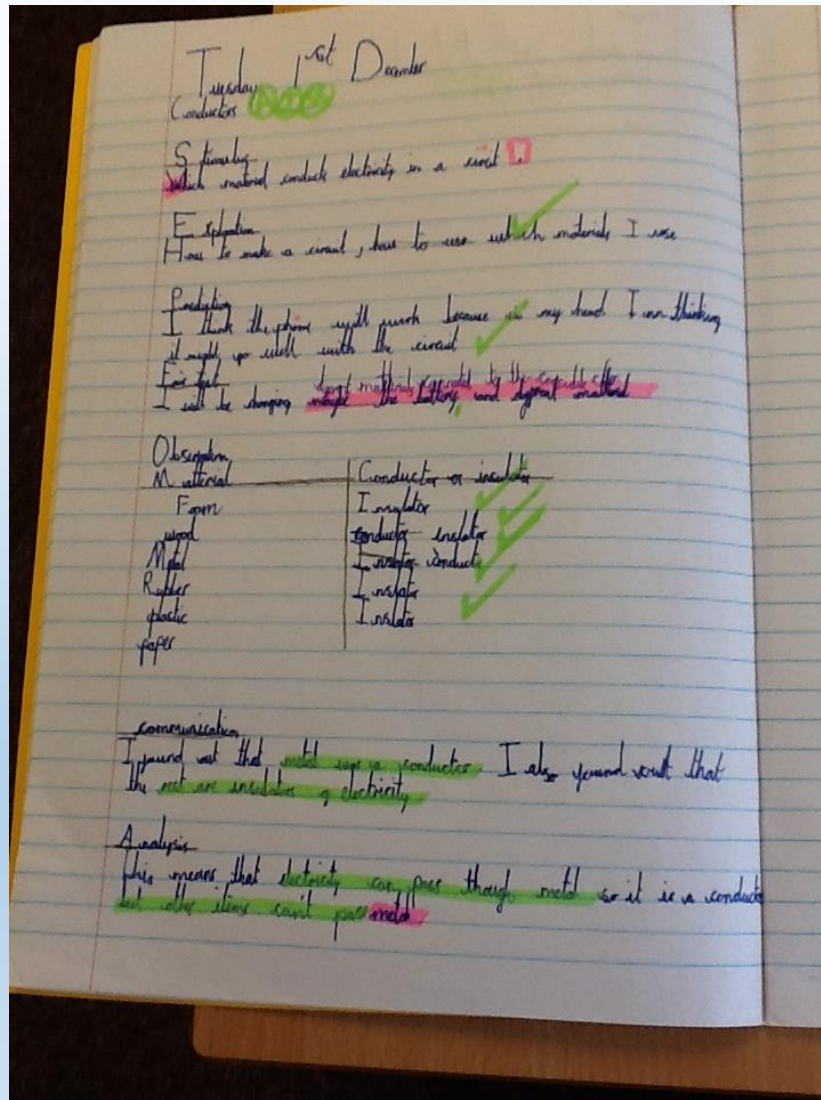 Tuesday 1st December
Conductors
Stimulus
Which material conducts electricity in a circuit.
Explanation
How to make a circuit, how to use which materials I use
Prediction
I think the phone will work because in my head I am thinking
it might go well with the circuit
Fair test
I will be changing the battery and
Observation
Matterial Conductor or insulator
Foam Insulator
wood conductor inslator
Metal conducts
Rubber Inslator
plastic Inslator
paper
communication
I found out that metal was a conductor. I also found out that
the rest are insulator of electricity
Analysis
this means that electricity can pass though metal so it is a conducto
but other items can't pass metal.